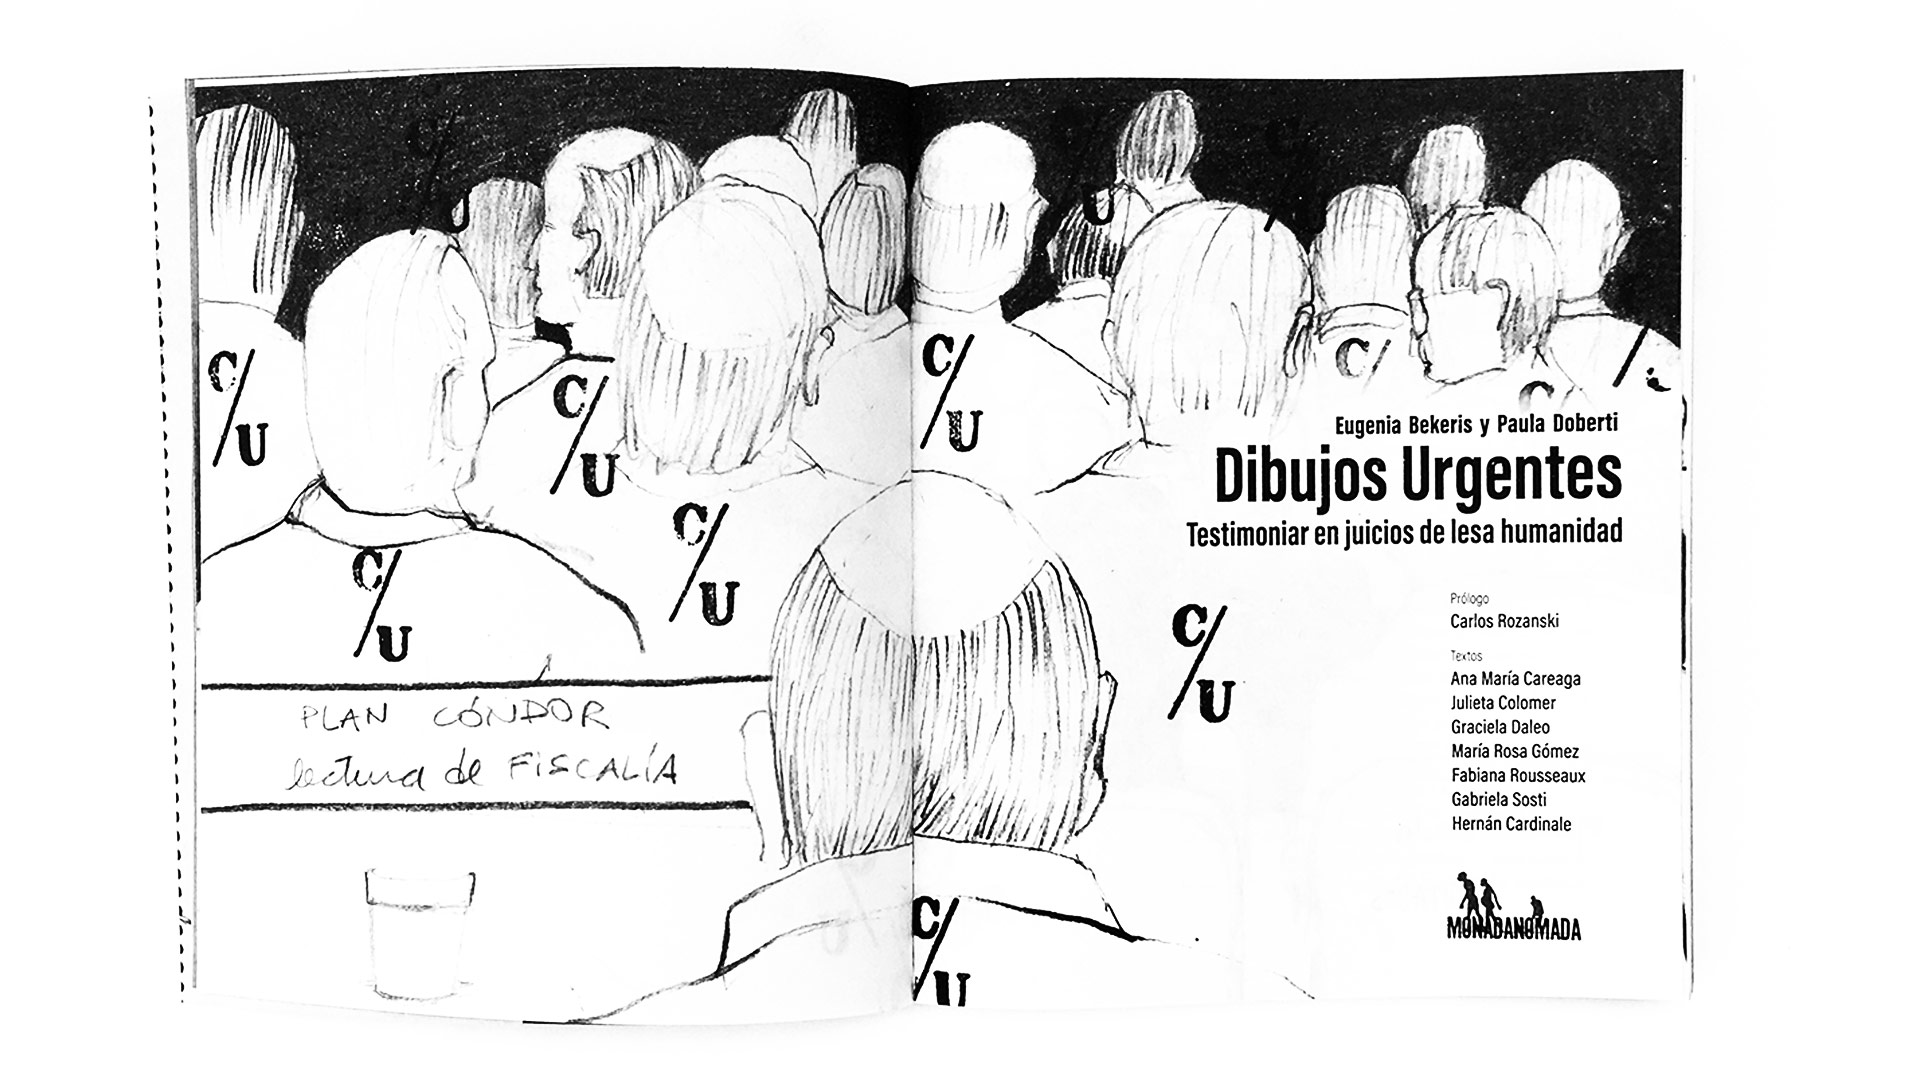 C/U
C/U
C/U
C/U
C/U
C/U
PLAN CÓNDOR
lectura de FISCALÍA
C/U
C/
C
Eugenia Bekeris y Paula Doberti
Dibujos Urgentes
Testimoniar en juicios de lesa humanidad
C/U
Prólogo
Carlos Rozanski
Textos
Ana María Careaga
Julieta Colomer
Graciela Daleo
María Rosa Gómez
Fabiana Rousseaux
Gabriela Sosti
Hernán Cardinale
C/U
MONADANOMADA